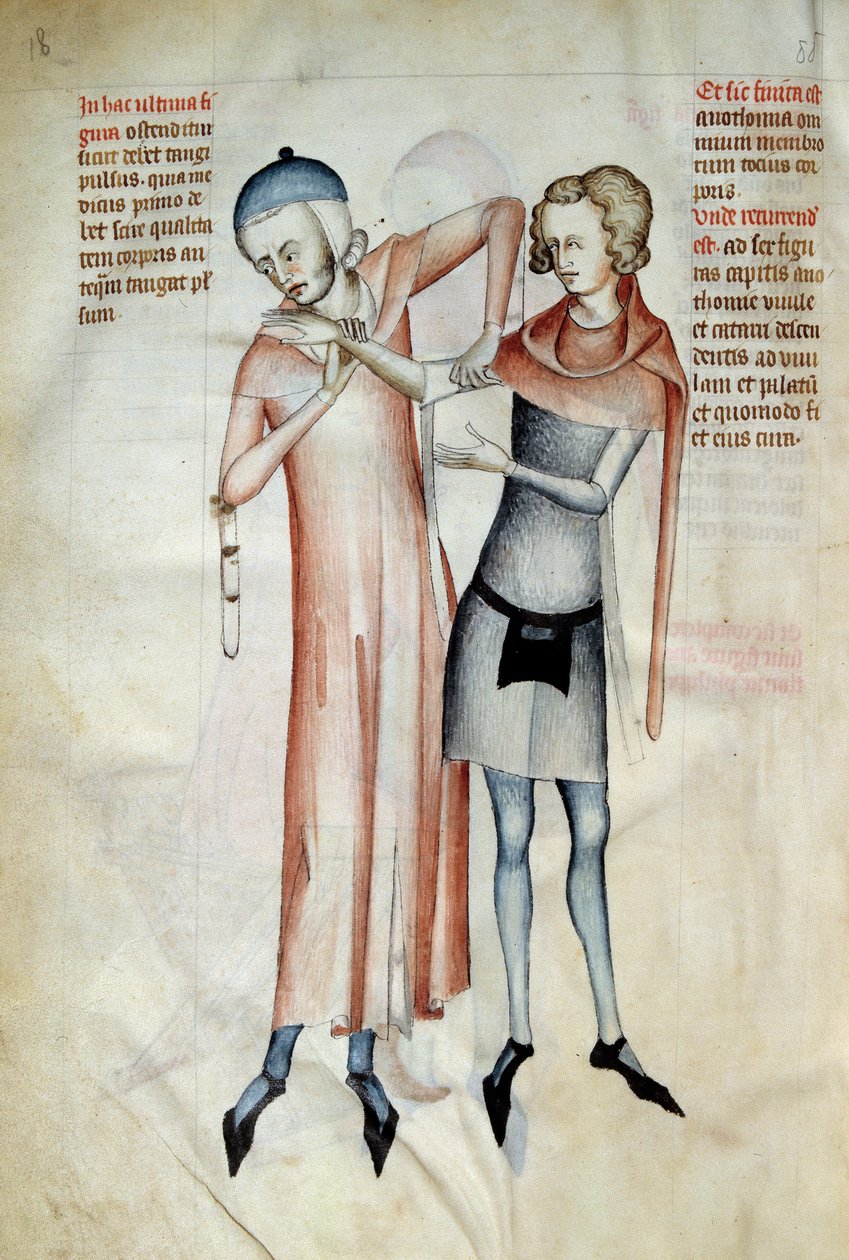 18
In hac ultima fi
gura ostenditur
sicut debet tangi
pulsus. quia me
dicus primo de
bet scire qualita
tem corporis an
teqm tangat pl
sum.
Et sic finita est
anothomia om
nium membro
rum tocius cor
poris.
Unde recurrend
est. ad sex figu
ras capitis ano
thomie vuule
et catarri descen
dentis ad vuu
lam et
et quomodo fi
et eius cura.